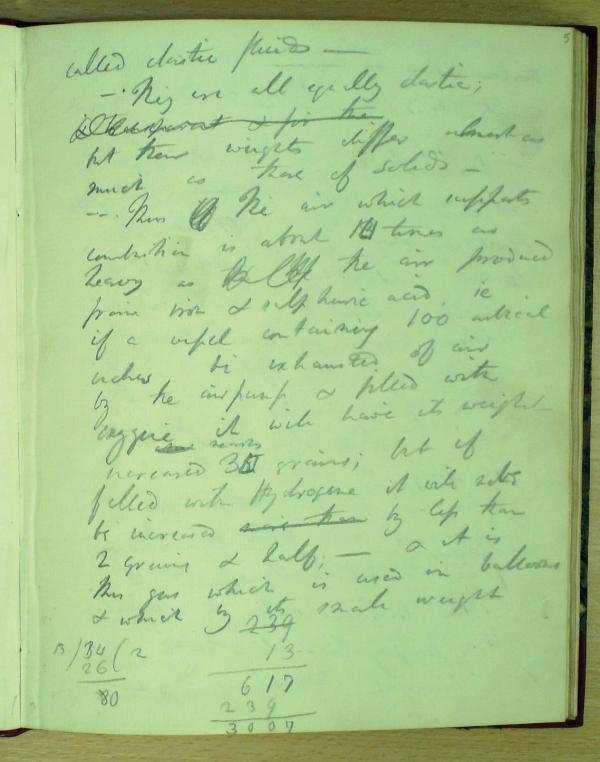 5
called elastic fluids —
—. They are all equally elastic;
& for their
but their weights differ almost as
much as those of solids —
—. Thus the air which supports
combustion is about 14 times as
heavy as the air produced
from iron & sulphuric acid. ie
if a vessel containing 100 cubical
inches be exhausted of air
by the air pump & filled with
oxygene it will have its weight
nearly
increased 35 grains; but if
filled with Hydrogene it will
be increased more than by less than
2 grains & half; — & it is
this gas which is used in balloons
& which by its small weight
239
13 / 34 ( 2 13
26 617
80 239
3007